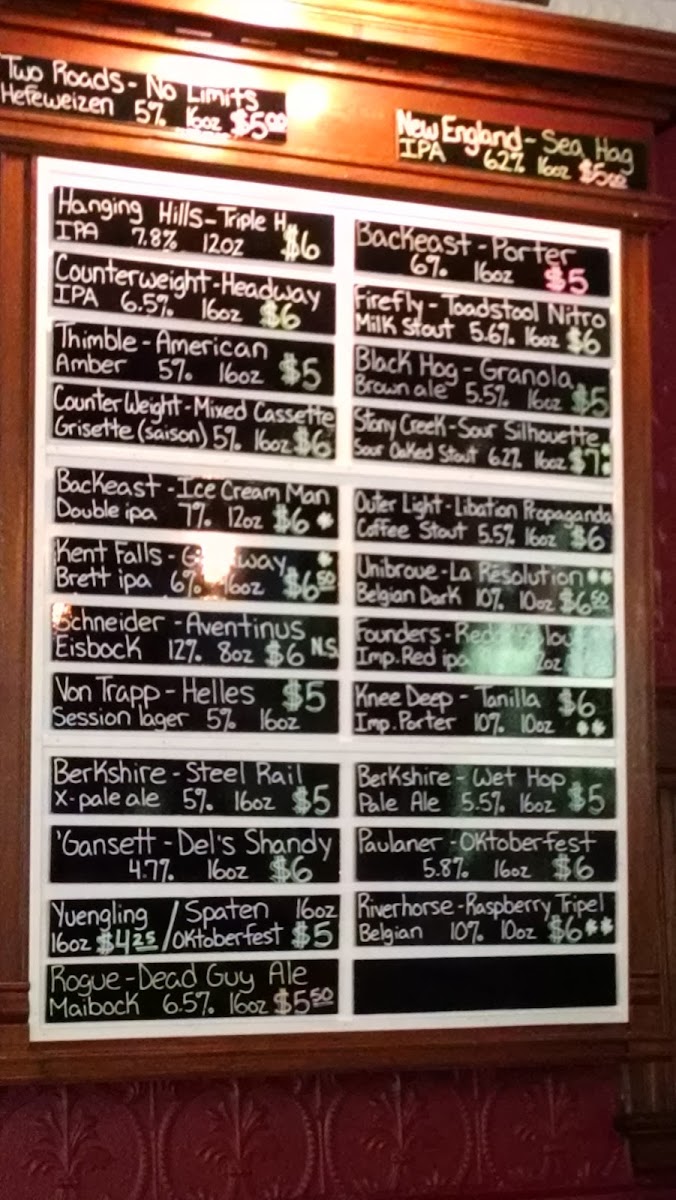 Two Roads - No Limits
Hefeweizen 5% 16oz $5.00
New England - Sea Hag
IPA 6.2% 16oz $5.00
Hanging Hills - Triple H
IPA 7.8% 12oz $6
Counterweight - Headway
IPA 6.5% 16oz $6
Thimble - American
Amber 5% 16oz $5
CounterWeight - Mixed Cassette
Grisette (saison) 5% 16oz $6
Backeast - Ice Cream Man
Double ipa 7% 12oz $6 *
Kent Falls - *
Brett ipa 6% 16oz $6.50
Schneider - Aventinus
Eisbock 12% 8oz $6 N.S.
Von Trapp - Helles $5
Session lager 5% 16oz
Berkshire - Steel Rail
X-pale ale 5% 16oz $5
'Gansett - Del's Shandy
4.7% 16oz $6
Yuengling / Spaten 16oz
16oz $4.25 / Oktoberfest $5
Rogue - Dead Guy Ale
Maibock 6.5% 16oz $5.50
Backeast - Porter
6% 16oz $5
Firefly - Toadstool Nitro
Milk Stout 5.6% 16oz $6
Black Hog - Granola
Brown ale 5.5% 16oz $5
Stony Creek - Sour Silhouette
Sour Oaked Stout 6.2% 16oz $7 **
Outer Light - Libation Propaganda
Coffee Stout 5.5% 16oz $6
Unibroue - La Résolution **
Belgian Dark 10% 10oz $6.50
Founders -
Imp. Red ipa
Knee Deep - Tanilla $6
Imp. Porter 10% 10oz **
Berkshire - Wet Hop
Pale Ale 5.5% 16oz $5
Paulaner - Oktoberfest
5.8% 16oz $6
Riverhorse - Raspberry Tripel
Belgian 10% 10oz $6 **